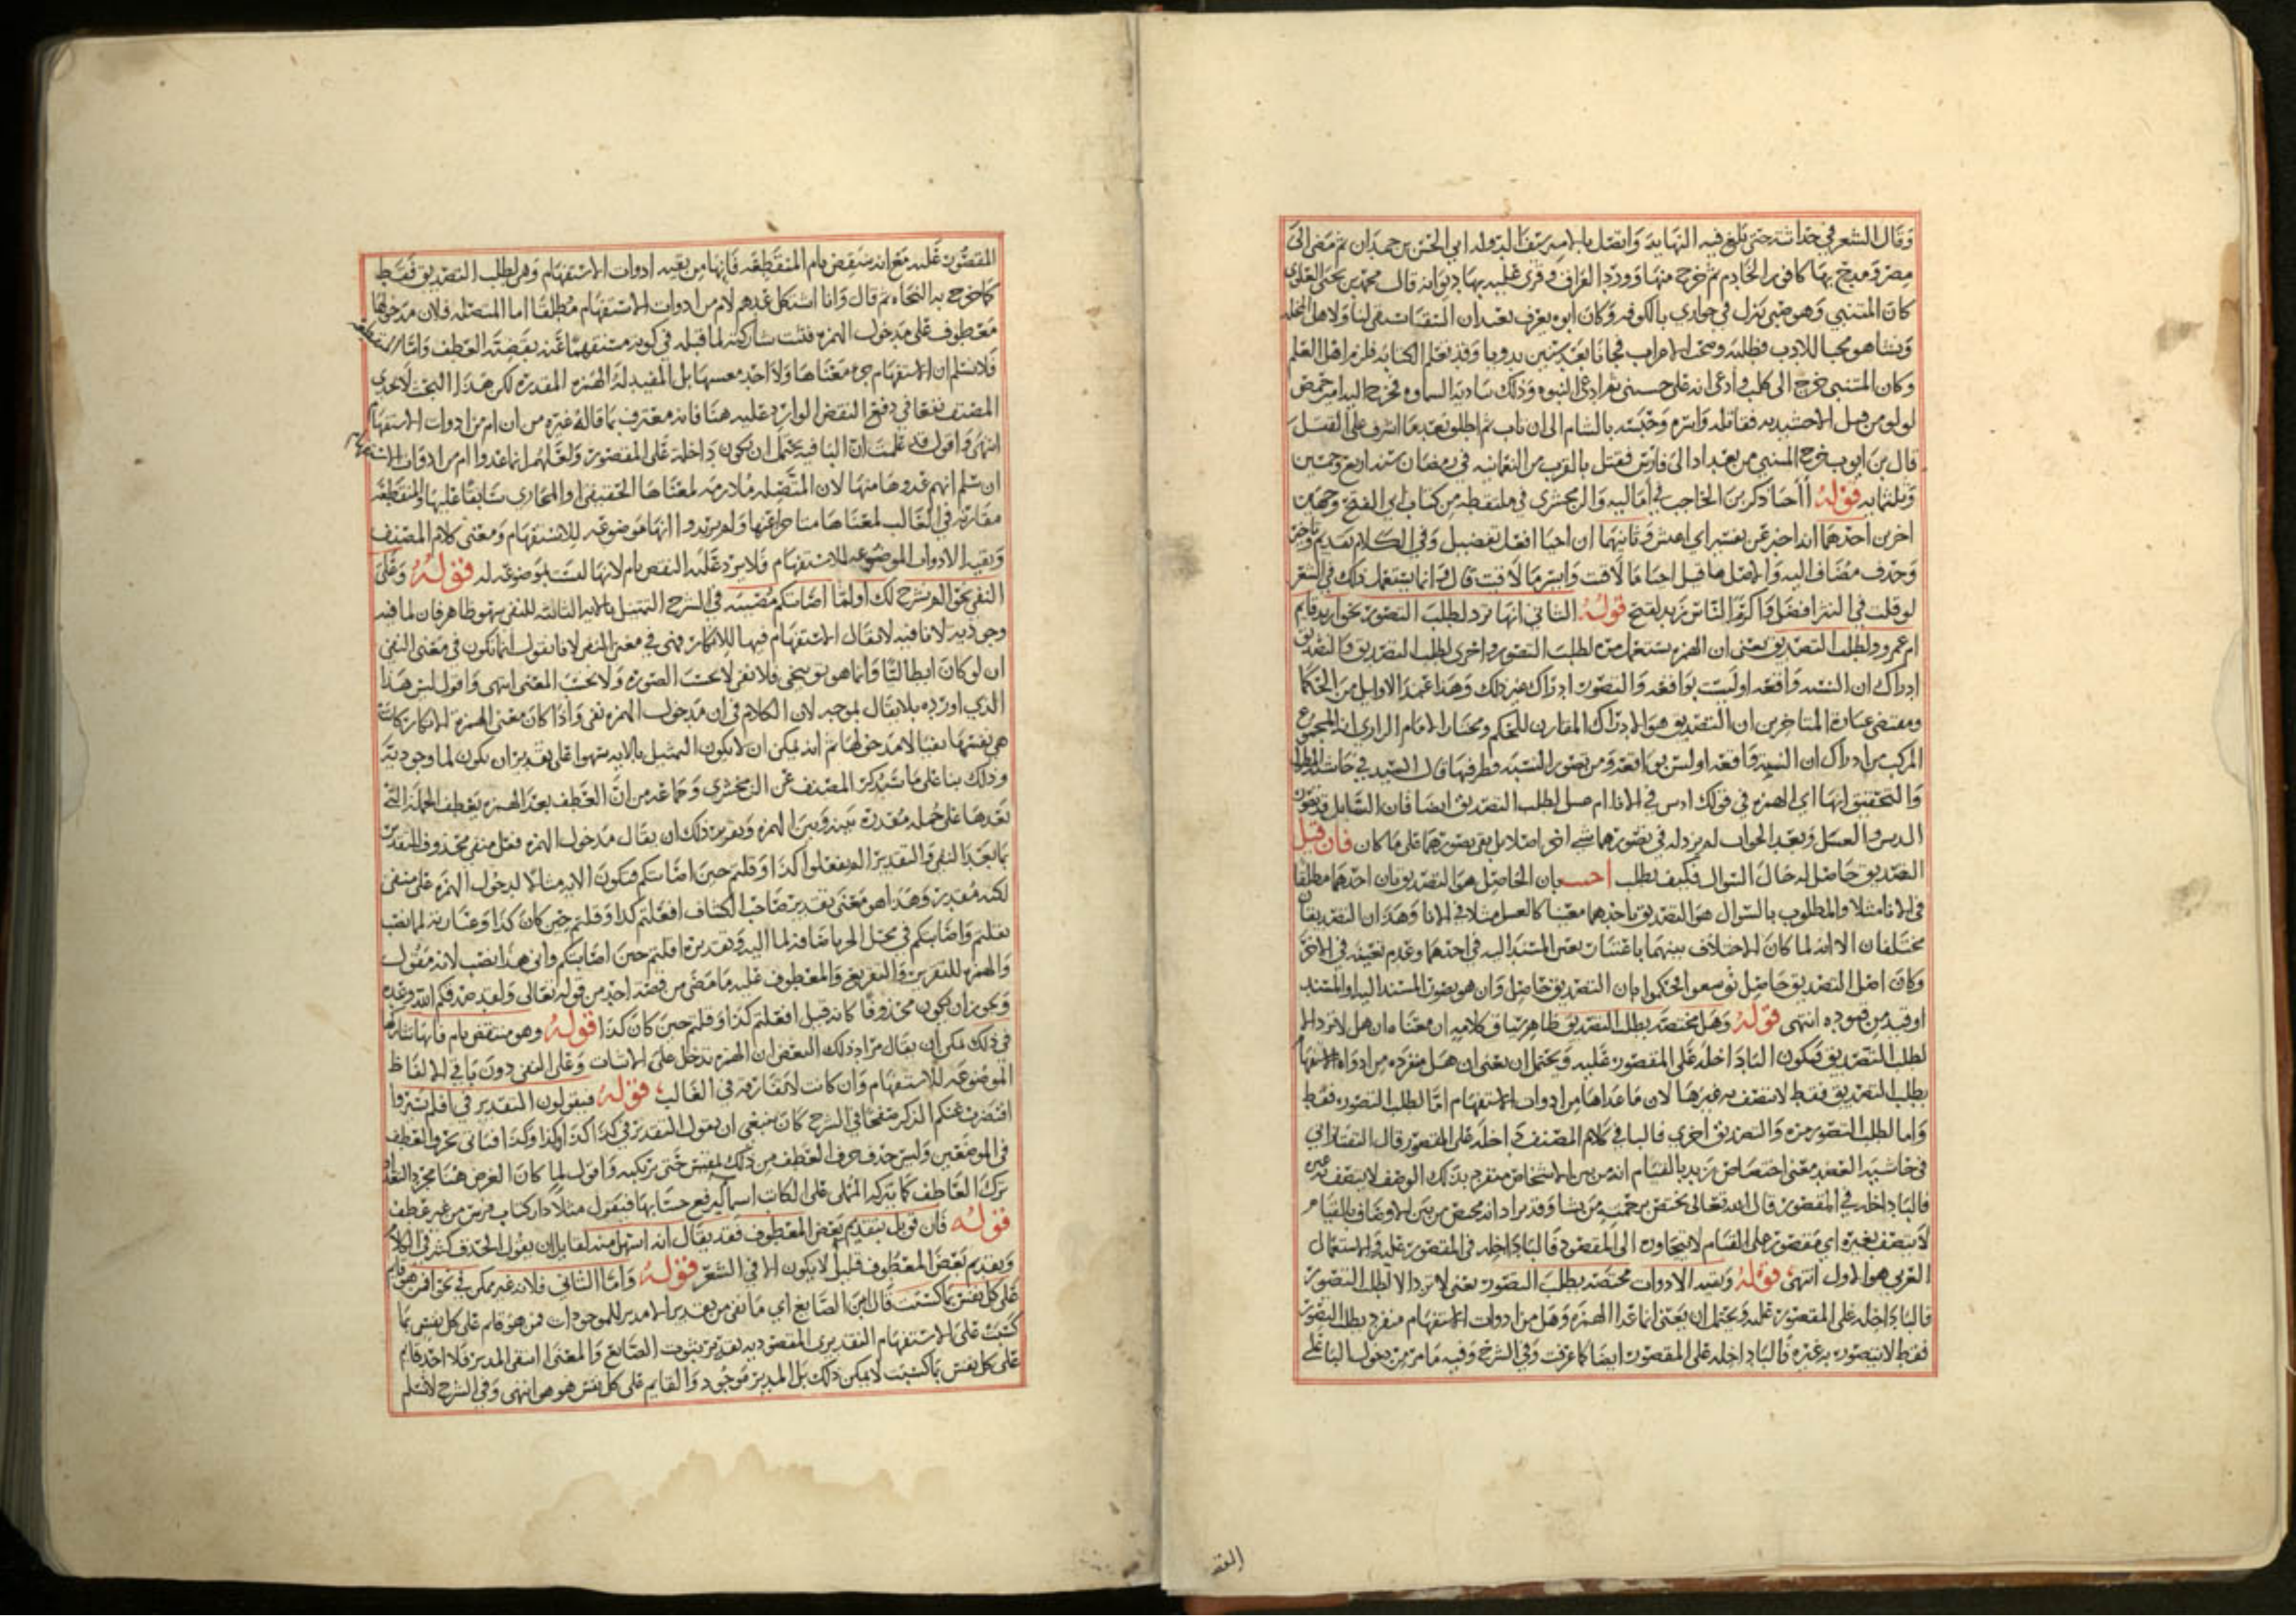 وقال الشعر في حداثته حتى بلغ فيه النهاية واتصل بالامير سيف الدولة ابي الحسن بن حمدان ثم مضى الى
مصر ومدح بها كافور الخادم ثم خرج منها وورد العراق وقرئ عليه بها ديوانه قال محمد بن يحيى العلوي
كان المتنبي وهو صبي نزل في جواري بالكوفه وكان ابوه يعرف بعبدان السقا يستقي لنا ولاهل المحله
ونشا هو محبا للادب فطلبه وصحب الاعراب فجانا بعد سنين بدويا وقد تعلم الكتابه فلزم اهل العلم
وكان المتنبي خرج الى كلب وادعى انه علي حسني ثم ادعى النبوه وذلك ببادية السماوه فخرج اليه امير حمص
لولو من قبل الاخشيديه فقاتله واسره وحبسه بالشام الى ان تاب ثم اطلق بعد ما اشرف على القتل
قال بن ايوب خرج المتنبي من بغداد الى فارس فقتل بالقرب من النعمانيه في رمضان سنه اربع وخمسين
وثلثمايه قوله أأحيا ذكر بن الحاجب في اماليه والزمخشري في ملتقطه من كتاب ابي الفتح وجهين
اخرين احدهما انه اخبر عن نفسه اي اعيش وثانيهما ان احيا افعل تفضيل وفي الكلام تقديم وتاخير
وحذف مضاف اليه والاصل ما قيل احيا ما لاقيت وايسر ما لاقيت قال وانما يستعمل ذلك في الشعر
لو قلت في النثر افضل واكرم الناس زيد لقبح قوله الثاني انها ترد لطلب التصور نحو ازيد قايم
ام عمرو ولطلب التصديق يعني ان الهمزه يستعمل مره لطلب التصور واخرى لطلب التصديق فالتصديق
ادراك ان النسبه واقعه او ليست بواقعه والتصور ادراك غير ذلك وهذا عند الاوايل من الحكما
ومقتضى عبارة المتاخرين ان التصديق هو الادراك المقارن للحكم ومختار الامام الرازي انه المجموع
المركب من ادراك ان النسبه واقعه او ليس بواقعه ومن تصور النسبه وطرفيها قال السيد في حاشية المطول
والتحقيق انها اي الهمزه في قولك ادبس في الانا ام عسل لطلب التصديق ايضا فان السايل قد تصور
الدبس والعسل وبعد الجواب لم يزد له في تصورهما شي اخر اصلا بل بقي تصورهما على ما كان فان قيل
التصديق حاصل له حال السوال فكيف يطلب اجيب بان الحاصل هو التصديق بان احدهما مطلقا
في الانا مثلا والمطلوب بالسوال هو التصديق باحدهما معينا كالعسل مثلا في الانا وهذان التصديقان
مختلفان الا انه لما كان الاختلاف بينهما باعتبار تعين المسند اليه في احدهما وعدم تعينه في الاخر
وكان اصل التصديق حاصل توسعوا فحكموا بان التصديق حاصل وان هو تصور المسند اليه او المسند
او قيد من قيوده انتهى قوله وهل مختصه بطلب التصديق ظاهر سياق كلامه ان معناه ان هل لا ترد الا
لطلب التصديق فتكون البا داخله على المقصور عليه ويحتمل ان يعني ان هل منفرده من ادواه الاستفهام
بطلب التصديق فقط لا يتصف به غيرها لان ما عداها من ادوات الاستفهام اما لطلب التصور فقط
واما لطلب التصور مره والتصديق اخرى فالبا في كلام المصنف داخله على المقصور قال التفتازاني
في حاشية العضد معنى اختصاص زيد بالقيام انه من بين الاشخاص منفرد بذلك الوصف لا يتصف به غيره
فالبا داخله في المقصور قال الله تعالى يختص برحمته من يشا وقد يراد انه يختص من بين الاوصاف بالقيام
لا يتصف بغيره اي مقصور على القيام لا يتجاوزه الى المقصود فالبا داخله في المقصور عليه والاستعمال
العربي هو الاول انتهى قوله وبقية الادوات مختصه بطلب التصور يعني لا ترد الا لطلب التصور
فالبا داخله على المقصور عليه ويحتمل ان يعني ان ما عدا الهمزه وهل من ادوات الاستفهام منفرد بطلب التصور
فقط لا يتصور به غيره فالبا داخله على المقصور ايضا كما عرفت وفي الشرح وفيه ما مر من دخول البا على
المقصور عليه مع انه ينتقض بام المنقطعه فانها من بقيه ادوات الاستفهام وهي لطلب التصديق فقط
كما خرج به النحاه ثم قال وانا استشكل عدهم لام من ادوات الاستفهام مطلقا اما المتصله فلان مدخولها
معطوف على مدخول الهمزه فثبت مشاركته لما قبله في كونه مستفهما عنه بقضية العطف واما المنقطعه
فلا نسلم ان الاستفهام جزء معناها ولا احد معنييها بل المفيد له الهمزه المقدره لكن هذا البحث لا يجدي
المصنف نفعا في دفع النقض الوارد عليه هنا فانه معترف بما قاله غيره من ان ام من ادوات الاستفهام
انتهى واقول قد علمت ان البا فيه يحتمل ان تكون داخله على المقصور ولعلهم انما عدوا ام من ادوات الاستفهام
ان سلم انهم عدوها منها لان المتصله ملازمه لمعناها الحقيقي او المجازي سابقا عليها والمنقطعه
مقارنه في الغالب لمعناها متاخرا عنها ولم يريدوا انها موضوعه للاستفهام ومعنى كلام المصنف
وبقيه الادوات الموضوعه للاستفهام فلا يرد عليه النقض بام لانها ليست بموضوعه له قوله وعلى
النفي نحو الم نشرح لك اولما اصابتكم مصيبه في الشرح التمثيل بالايه الثانيه للنفي سهو ظاهر فان لما فيه
وجوديه لا نافيه لا يقال الاستفهام فيها للانكار فهي في معنى النفي لانا نقول انما تكون في معنى النفي
ان لو كان ابطاليا وانما هو توبيخي فلا نفي لا بحسب الصوره ولا بحسب المعنى انتهى واقول ليس هذا
الذي اورده بلا يقال بموجه لان الكلام في ان مدخول الهمزه نفي واذا كان معنى الهمزة الانكار كانت
هي نفسها نفيا لا مدخولها ثم انه يمكن ان لا يكون التمثيل بالايه سهوا على تقدير ان يكون لما وجوديه
وذلك بنا على ما سيذكره المصنف عن الزمخشري وجماعه من ان العطف بعد الهمزه يعطف الجمله التي
بعدها على جمله مقدرة بينه وبين الهمزه وتقرير ذلك ان يقال مدخول الهمزه فعل منفي محذوف التقدير
بما بعد النفي والتقدير الم تفعلوا كذا وقلتم حين اصابتكم فتكون الايه مثالا لدخول الهمزه على منفي
لكنه مقدر وهذا هو معنى تقدير صاحب الكشاف افعلتم كذا وقلتم حين كان كذا وعبارته لما نصب
بقلتم واصابتكم في محل الجر باضافة لما اليه وتقديره اقلتم حين اصابتكم واني هذا نصب لانه مقول
والهمزه للتقرير والتقريع والمعطوف عليه ما مضى من قصة احد من قوله تعالى ولقد صدقكم الله وعده
ويجوز ان يكون محذوفا كانه قيل افعلتم كذا وقلتم حين كان كذا قوله وهو منتقض بام فانها تشاركها
في ذلك يمكن ان يقال مراد ذلك البعض ان الهمزه تدخل على الاثبات وعلى النفي دون باقي الالفاظ
الموضوعه للاستفهام وان كانت لا تفارقه في الغالب قوله فيقولون التقدير في افلم يسيروا
افنضرب عنكم الذكر صفحا في الشرح كان ينبغي ان يقول التقدير في كذا كذا وكذا وكذا فياتي بحرف العطف
في الموضعين وليس حذف حرف العطف من ذلك بمقيس حتى يرتكبه واقول لما كان الغرض هنا مجرد التعداد
ترك العاطف كما يتركه المملي على الكاتب اسما ليرفع حسابها فيقول مثلا دار كتاب فرس من غير عطف
قوله فان قوبل بتقديم بعض المعطوف فقد يقال انه اسهل منه لقايل ان يقول الحذف كثير في الكلام
وتقديم بعض المعطوف قليل لا يكون الا في الشعر قوله واما الثاني فلانه غير ممكن في نحو افمن هو قايم
على كل نفس بما كسبت قال ابن الصايغ اي مانع من تقدير الامدبر للموجودات فمن هو قايم على كل نفس بما
كسبت على الاستفهام التقديري المقصود به تقرير ثبوت الصانع والمعنى انتفى المدبر فلا احد قايم
على كل نفس بما كسبت لا يمكن ذلك بل المدبر موجود والقايم على كل نفس هو هو انتهى وفي الشرح لا نسلم
المقـ